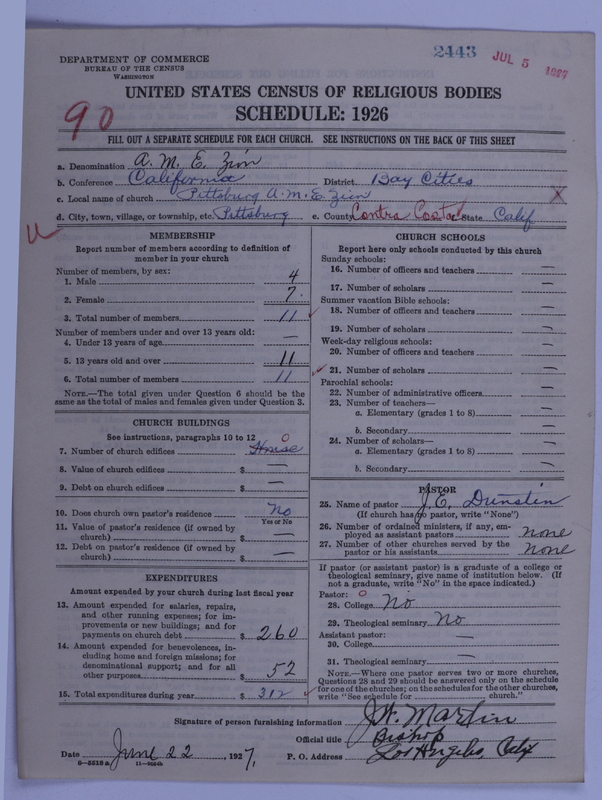 2443
JUL 5 1927
DEPARTMENT OF COMMERCE
BUREAU OF THE CENSUS
WASHINGTON
UNITED STATES CENSUS OF RELIGIOUS BODIES
SCHEDULE: 1926
90
FILL OUT A SEPARATE SCHEDULE FOR EACH CHURCH. SEE INSTRUCTIONS ON THE BACK OF THIS SHEET
a. Denomination A. M. E. Zion
b. Conference California District Bay Cities
c. Local name of church Pittsburg A. M. E. Zion X
d. City, town, village, or township, etc. Pittsburg e. County Contra Costa State Calif
MEMBERSHIP
Report number of members according to definition of
member in your church
Number of members, by sex:
1. Male 4
2. Female 7.
3. Total number of members 11
Number of members under and over 13 years old:
4. Under 13 years of age —
5. 13 years old and over 11
6. Total number of members 11
NOTE.—The total given under Question 6 should be
same as the total of males and females given under Question 3.
CHURCH BUILDINGS
See instructions, paragraphs 10 to 12
7. Number of church edifices 0
8. Value of church edifices $ —
9. Debt on church edifices $ —
10. Does church own pastor's residence No
Yes or No
11. Value of pastor's residence (if owned by
church) $ —
12. Debt on pastor's residence (if owned by
church) $ —
EXPENDITURES
Amount expended by your church during last fiscal year
13. Amount expended for salaries, repairs,
and other running expenses; for im-
provements or new buildings; and for
payments on church debt $ 260
14. Amount expended for benevolences, in-
cluding home and foreign missions; for
denominational support; and for all
other purposes $ 52
15. Total expenditures during year $ 312
CHURCH SCHOOLS
Report here only schools conducted by this church
Sunday schools:
16. Number of officers and teachers —
17. Number of scholars —
Summer vacation Bible schools:
18. Number of officers and teachers —
19. Number of scholars —
Week-day religious schools:
20. Number of officers and teachers —
21. Number of scholars —
Parochial schools:
22. Number of administrative officers —
23. Number of teachers—
a. Elementary (grades 1 to 8) —
b. Secondary —
24. Number of scholars—
a. Elementary (grades 1 to 8) —
b. Secondary —
PASTOR
25. Name of pastor J. E. Dunstin
(If church has no pastor, write "None")
26. Number of ordained ministers, if any, em-
ployed as assistant pastors none
27. Number of other churches served by the
pastor or his assistants none
If pastor (or assistant pastor) is a graduate of a college or
theological seminary, give name of institution below. (If
not a graduate, write "No" in the space indicated.)
Pastor: 0
28. College No
29. Theological seminary No
Assistant pastor:
30. College —
31. Theological seminary —
NOTE.—Where one pastor serves two or more churches,
Questions 28 and 29 should be answered only on the schedule
for one of the churches; on the schedules for the other churches,
write "See schedule for church."
Signature of person furnishing information J. W. Martin
Official title Bishop
Date June 22, 1927. P. O. Address Los Angeles, Calif
8-5518a